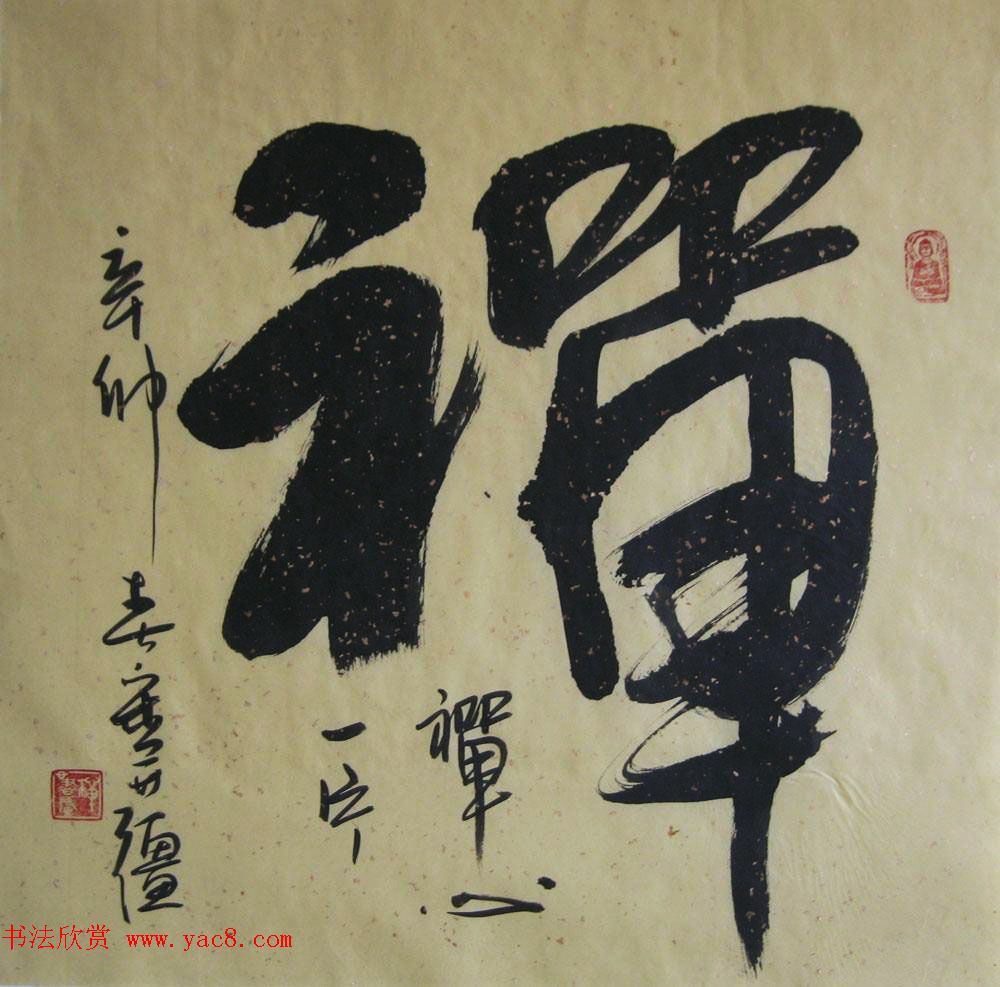 禪
禪心
一片
辛卯春寶
书法欣赏 www.yac8.com